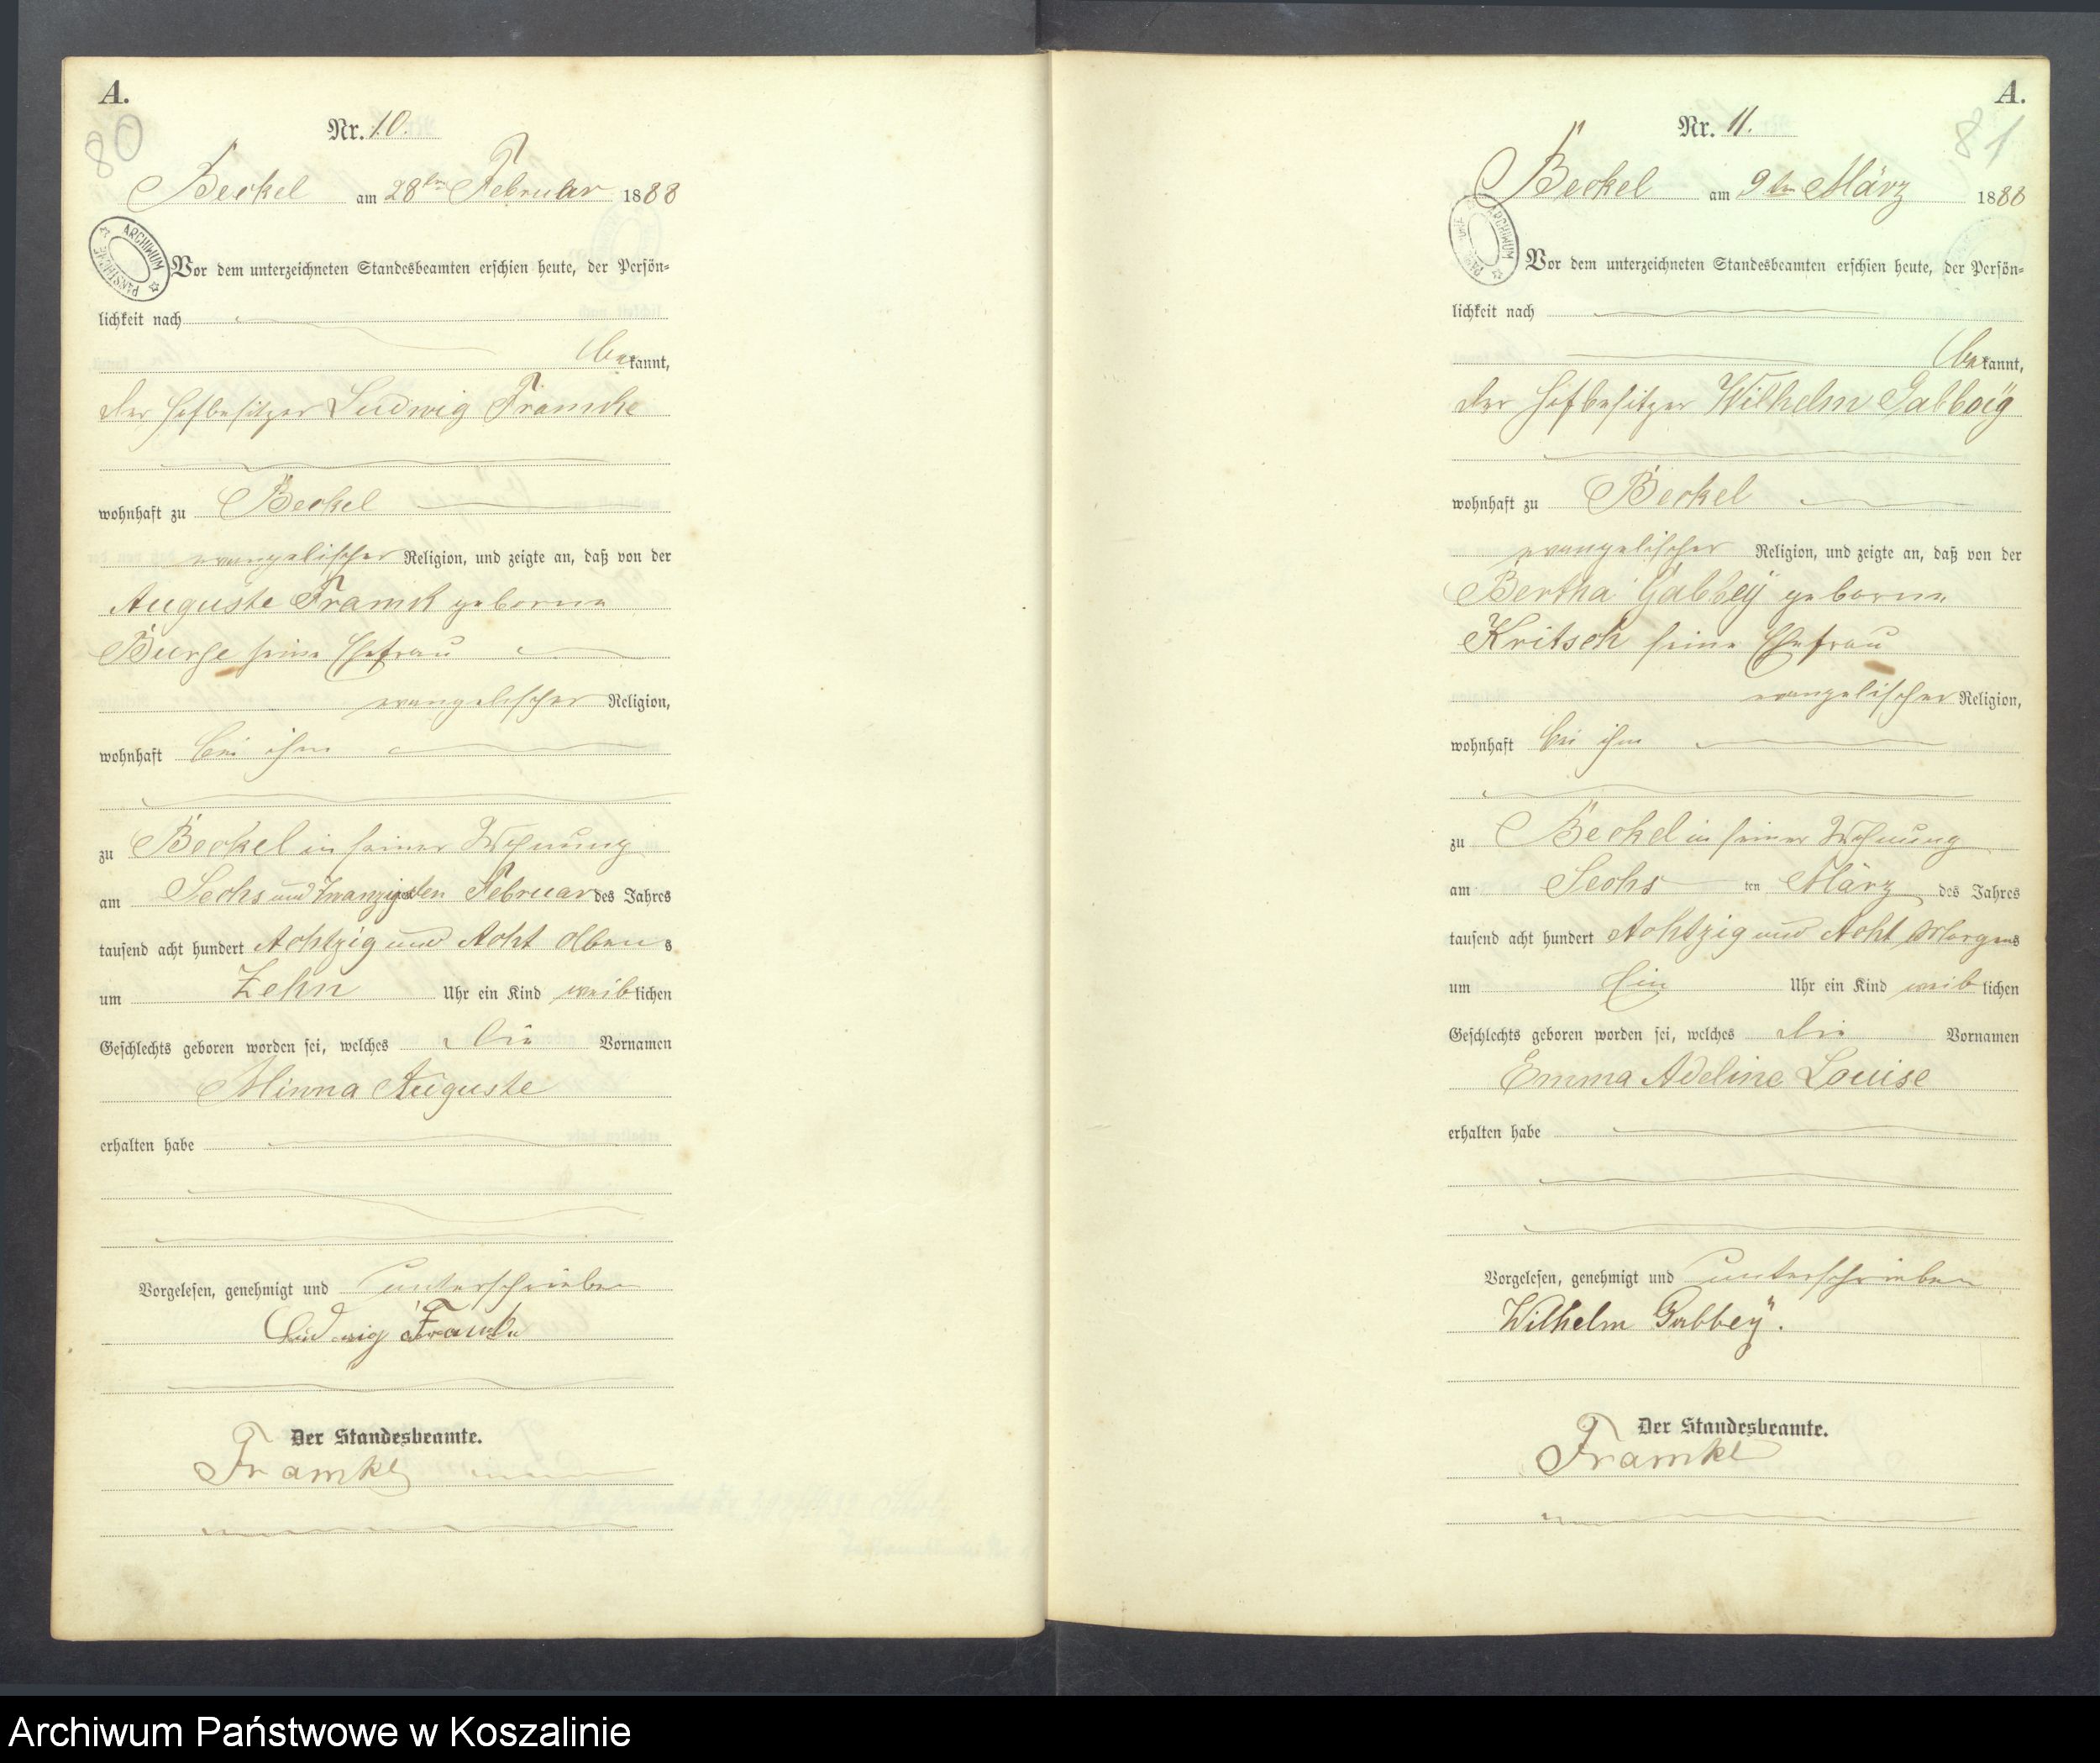 A.
80
Nr. 10.
Beckel am 28ten Februar 1888
ARCHIWUM PAŃSTWOWE
Vor dem unterzeichneten Standesbeamten erschien heute, der Persön-
lichkeit nach
bekannt,
der Hofbesitzer Ludwig Framke
wohnhaft zu Beckel
evangelischer Religion, und zeigte an, daß von der
Auguste Framk geborene
seine Ehefrau
evangelischer Religion,
wohnhaft bei ihm
zu Beckel in seiner Wohnung
am Sechs und zwanzigsten Februar des Jahres
tausend acht hundert Achtzig und Acht Abens
um Zehn Uhr ein Kind weiblichen
Geschlechts geboren worden sei, welches die Vornamen
Minna Auguste
erhalten habe
Vorgelesen, genehmigt und unterschrieben
Ludwig
Der Standesbeamte.
Framke
A.
81
Nr. 11.
Beckel am 9ten März 1888
ARCHIWUM PAŃSTWOWE
Vor dem unterzeichneten Standesbeamten erschien heute, der Persön-
lichkeit nach
bekannt,
der Hofbesitzer Wilhelm
wohnhaft zu Beckel
evangelischer Religion, und zeigte an, daß von der
Bertha Gabbeÿ geborene
Kritsch seine Ehefrau
evangelischer Religion,
wohnhaft bei ihm
zu Beckel in seiner Wohnung
am Sechs ten März des Jahres
tausend acht hundert Achtzig und Acht Morgens
um Ein Uhr ein Kind weiblichen
Geschlechts geboren worden sei, welches die Vornamen
Emma Adeline Louise
erhalten habe
Vorgelesen, genehmigt und unterschrieben
Wilhelm Gabbeÿ.
Der Standesbeamte.
Framke
Archiwum Państwowe w Koszalinie